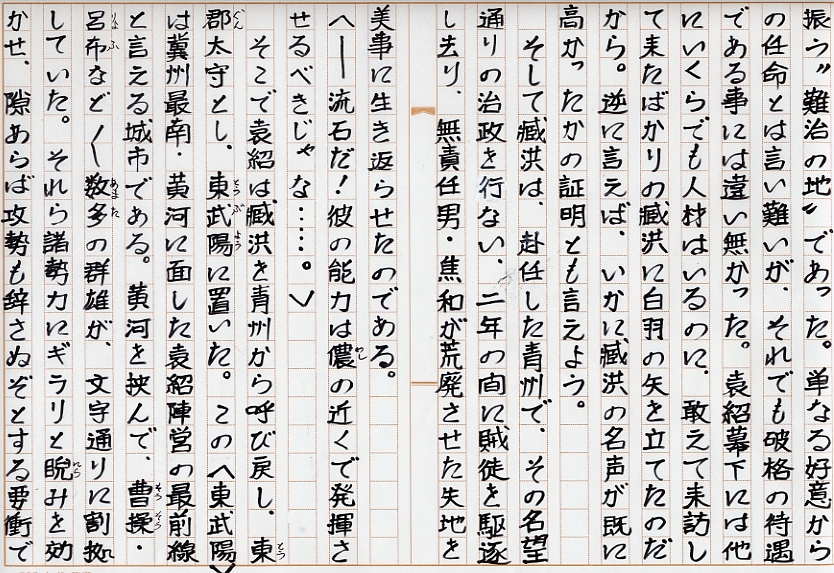 振う〝難治の地〟であった。単なる好意から
の任命とは言い難いが、それでも破格の待遇
である事には違い無かった。袁紹幕下には他
にいくらでも人材はいるのに、敢えて来訪し
て来たばかりの臧洪に白羽の矢を立てたのだ
から。逆に言えば、いかに臧洪の名声が既に
高かったかの証明とも言えよう。
そして臧洪は、赴任した青州で、その名望
通りの治政を行ない、二年の間に賊徒を駆逐
し去り、無責任男・焦和が荒廃させた失地を
美事に生き返らせたのである。
〈──流石だ！彼の能力は儂の近くで発揮さ
せるべきじゃな……。〉
そこで袁紹は臧洪を青州から呼び戻し、東
郡太守とし、東武陽に置いた。この〈東武陽〉
は冀州最南・黄河に面した袁紹陣営の最前線
と言える城市である。黄河を挟んで、曹操・
呂布など〱数多の群雄が、文字通りに割拠
していた。それら諸勢力にギラリと睨みを効
かせ、隙あらば攻勢も辞さぬぞとする要衝で